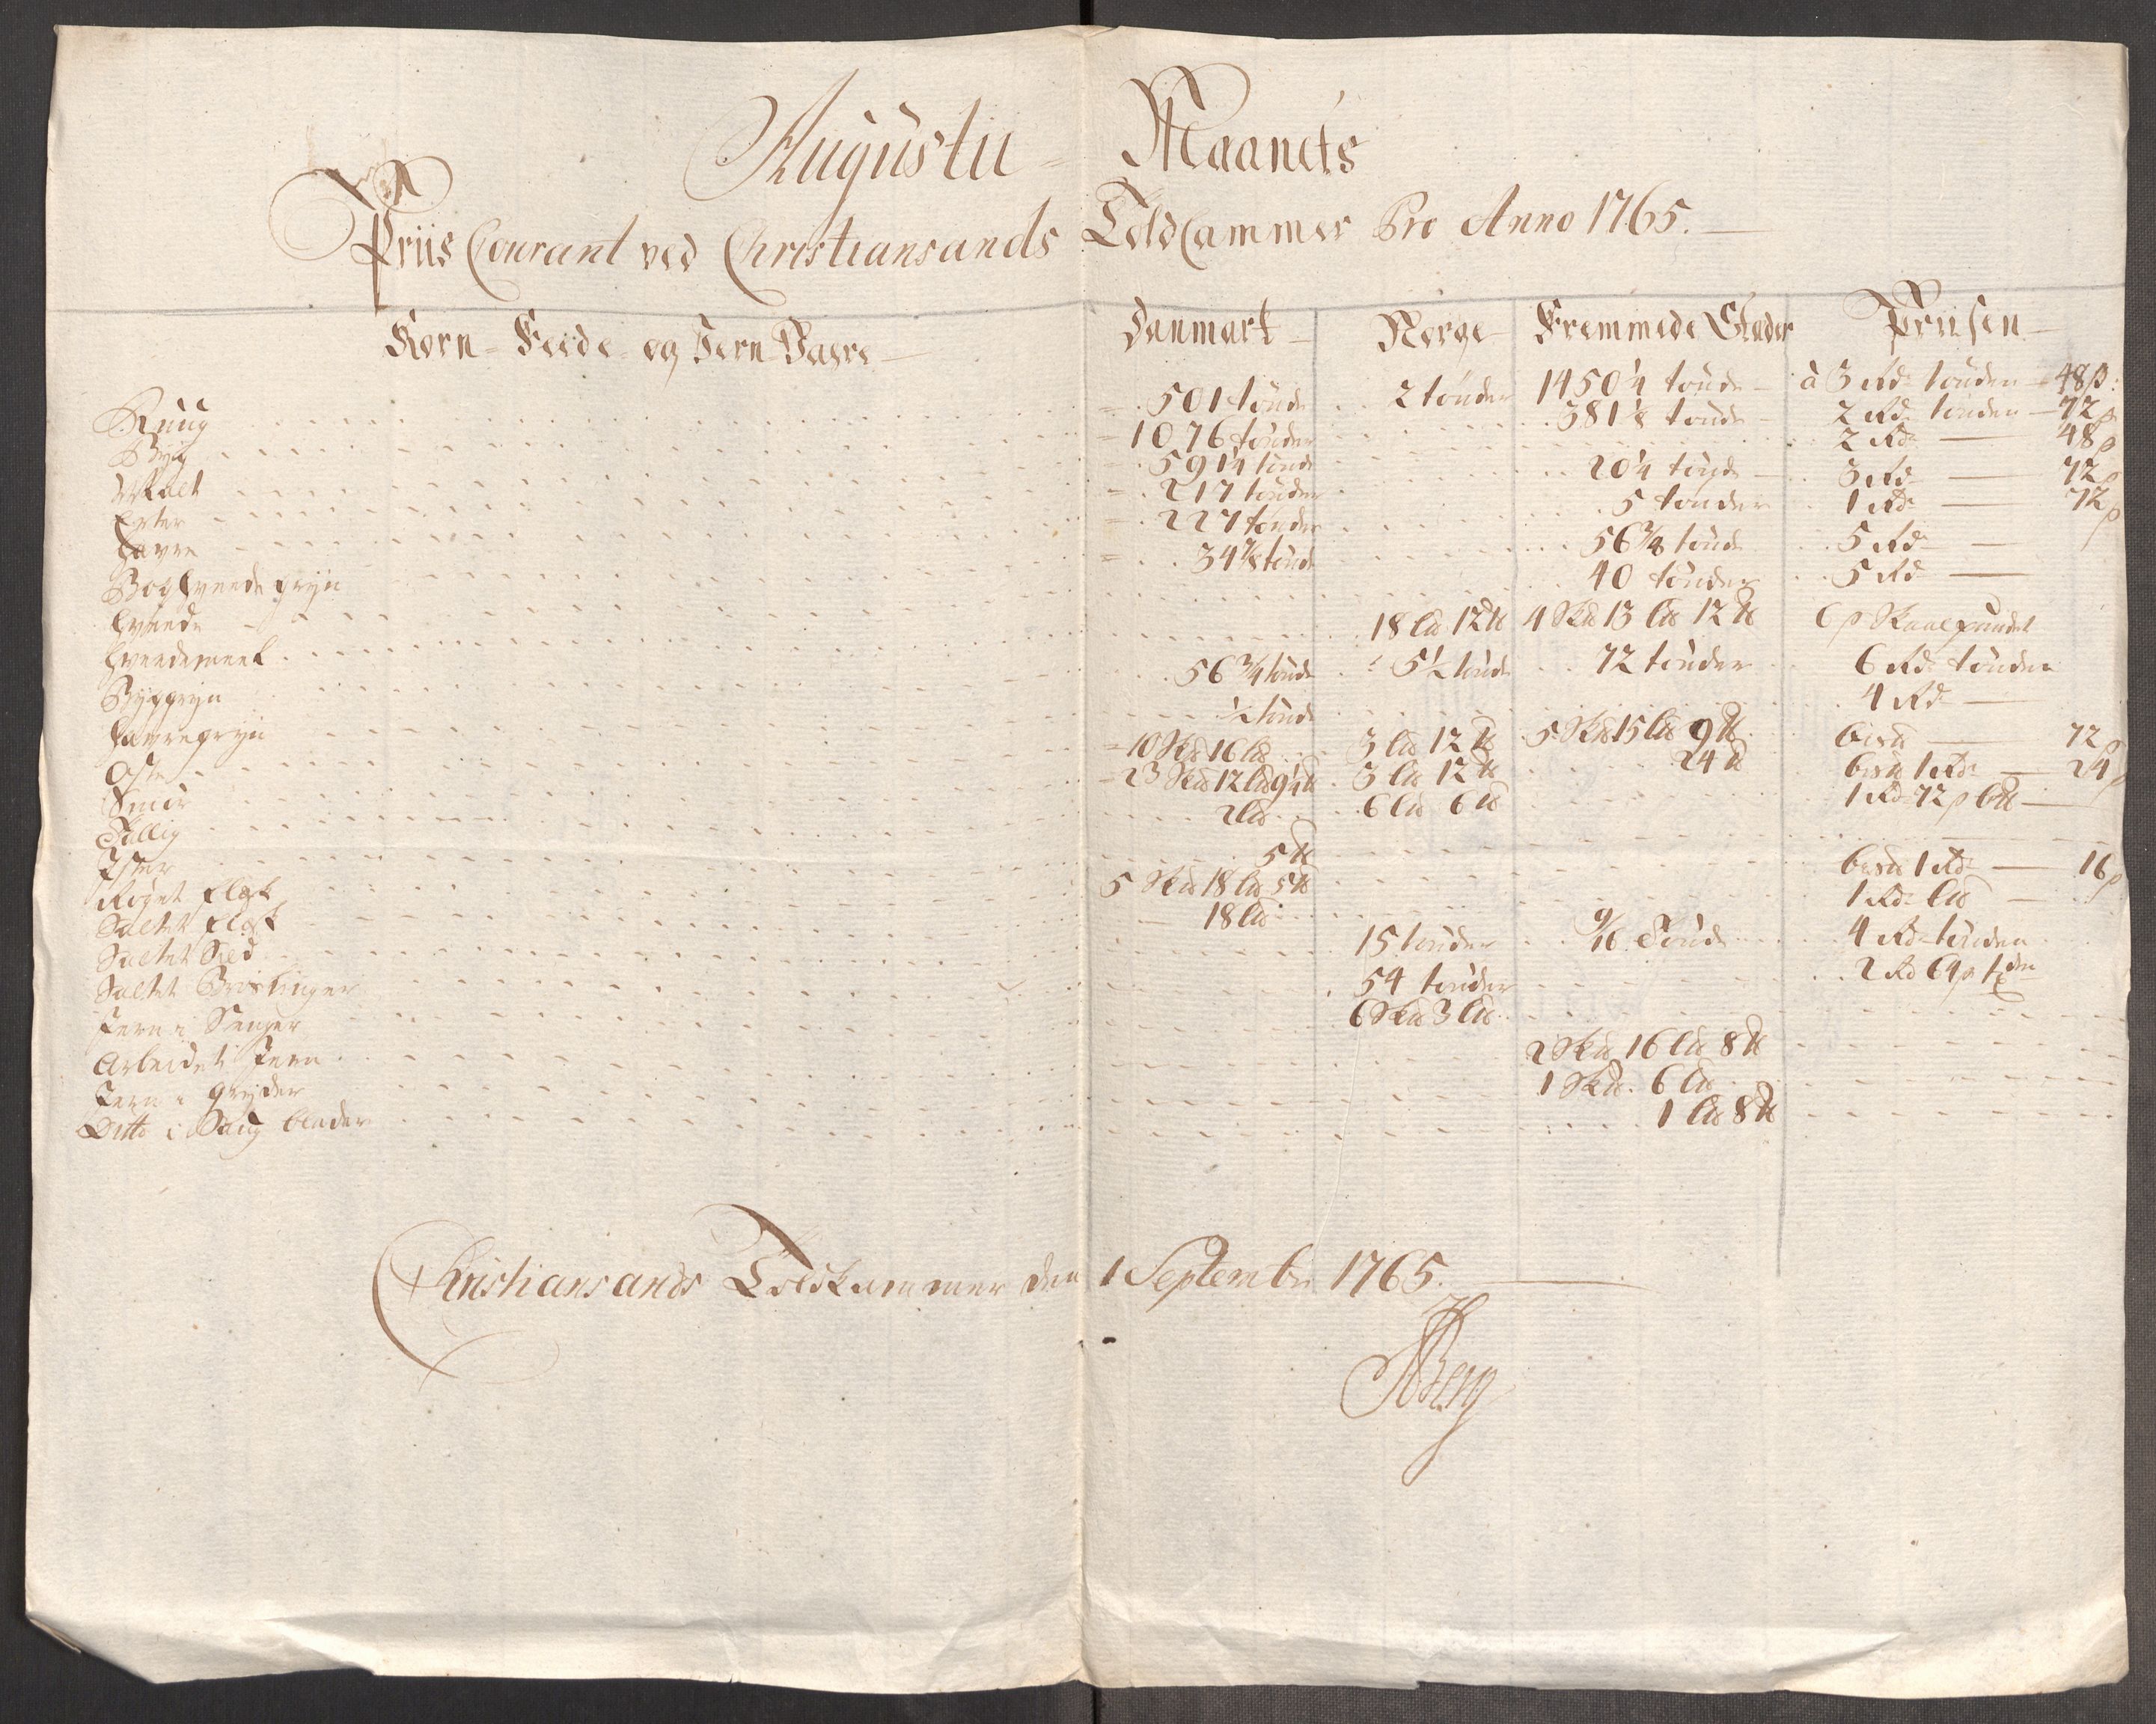 Augustii Maanets
Priis Courant ved Christiansands Told Cammer Pro Anno 1765.
Korn- Feede- og Jern Vaere Danmark Norge Fremmede Stæder Priisen
Ruug 501 tønde 2 tønder 1450 1/4 tønde à 3 Rd tønden 48ß:
Byg 1076 tønder 381 1/8 tønde 2 Rd tønden 72ß
Malt 591 1/4 tønde 2 Rd 48ß
Erter 217 tønder 20 1/4 tønde 3 Rd 72ß
Havre 227 tønder 5 tønder 1 Rd 72ß
Boghveede gryn 34 7/8 tønde 56 3/8 tønde 5 Rd
Hveede 40 tønder 5 Rd
Hveedemeel 18 L℔ 12 ℔ 4 Sk℔ 13 L℔ 12 ℔ 6ß Skaalpundet
Byggryn 56 3/4 tønde 5 1/2 tønde 72 tønder 6 Rd tønden
Havregryn 1/2 tønde 4 Rd
Oste 10 Sk℔ 16 L℔ 3 L℔ 12 ℔ 5 Sk℔ 15 L℔ 9 ℔ 72ß
Smør 23 Sk℔ 12 L℔ 9 1/4 ℔ 3 L℔ 12 ℔ 24 ℔ 1 Rd 24ß
Tallig 2 L℔ 6 L℔ 6 ℔ 1 Rd 72ß L℔
Ister 5 ℔
Røget flesk 5 Sk℔ 18 L℔ 5 ℔ 1 Rd 16ß
Saltet flesk 18 L℔ 1 Rd L℔
Saltet Sild 15 tønder 9/16 Tønde 4 Rd tønden
Saltet Brislinger 54 tønder 2 Rd 64ß tden
Jern i Stenger 6 Sk℔ 3 L℔
Arbeidet Jern 2 Sk℔ 16 L℔ 8 ℔
Jern i Gryder 1 Sk℔ 6 L℔
Ditto i Saug blader 1 L℔ 8 ℔
Christiansands Toldkammer den 1 Septembr 1765.
Berg